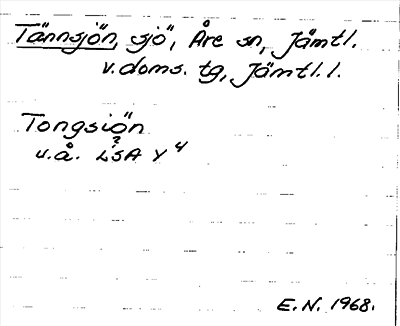 Tännsjön, sjö, Åre sn, Jämtl.
v. doms. tg, Jämtl. l.
Tongsiön
u.å. LSA Y 4
E.N. 1968.